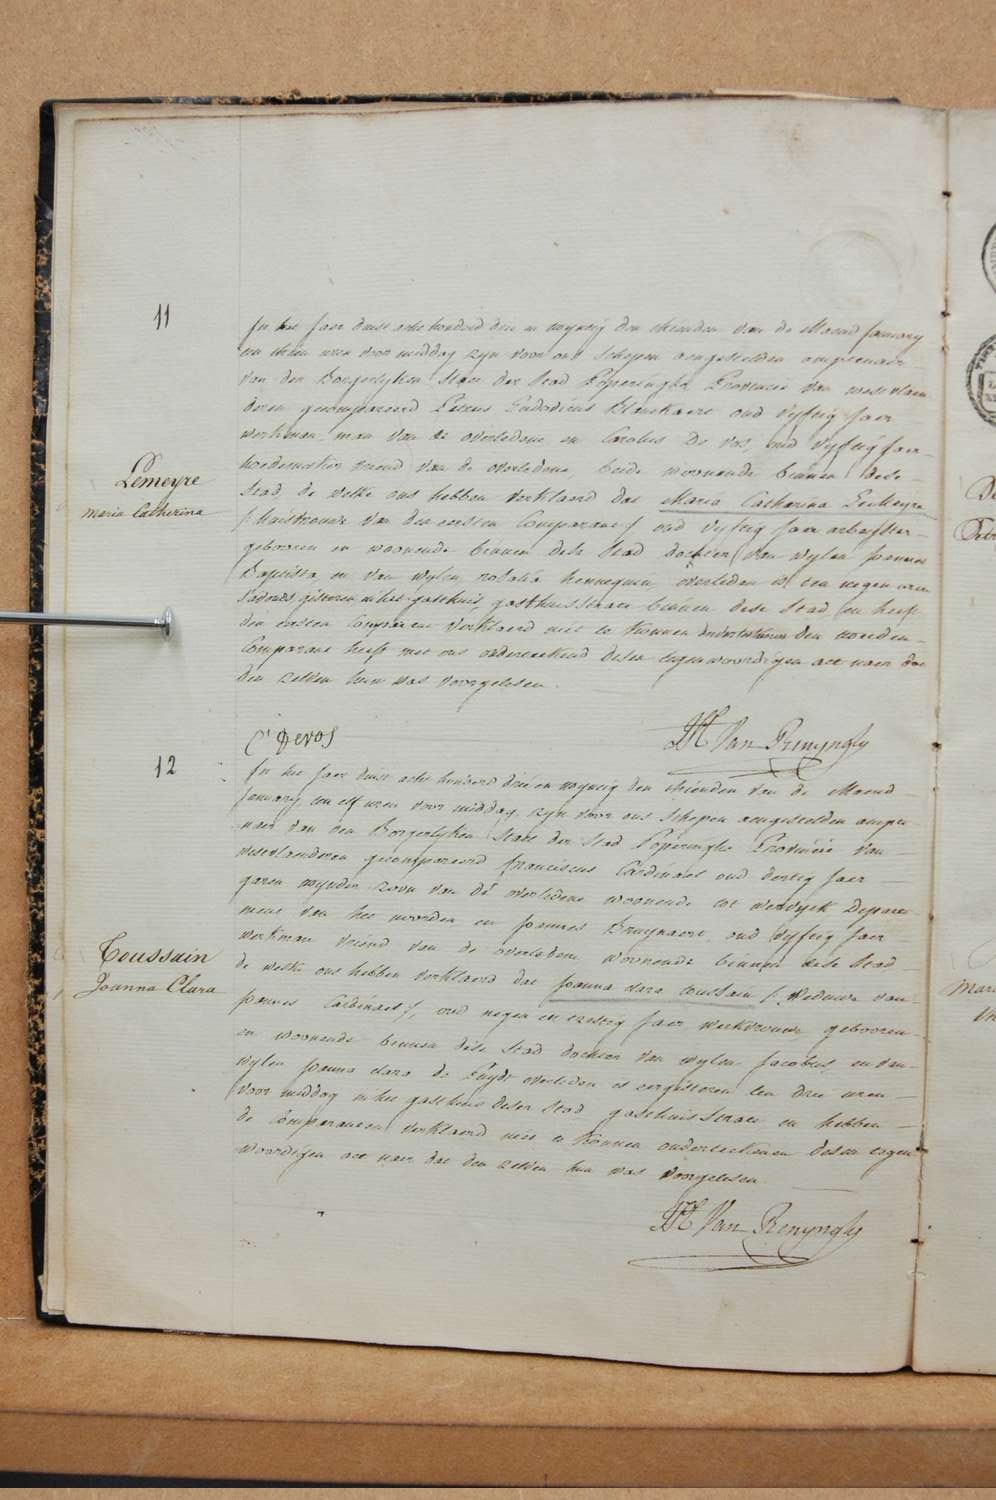 11
Lemeyre
Maria Catherina
In het Jaer duist acht honderd drie en twyntig den thienden van de Maend January
ten thien uren voor middag zyn voor ons Schepen aengestelden amptenaer
van den Borgerlyken Staet der Stad Poperinghe Provincie van west vlaen
deren gecompareerd Petrus Ludovicus Blanckaert oud vyftig Jaer
werkman, man van de overledene en Carolus De vos, oud vyftig Jaer
hoedemaker vriend van de overledene beide woonende binnen dese
Stad, de welke ons hebben verklaerd dat Maria Catharina LeMeyre
(: Huisvrouwe van den eersten Comparant :) oud vyftig Jaer arbeydster
gebooren en woonende binnen dese Stad dochter van wylen Joannes
Baptista, en van wylen rosalia hennequin, overleden is ten negen uren
s'avonds gisteren in het gasthuis, gasthuis Straet binnen dese Stad en heeft
den eersten Comparant verklaerd niet te konnen onderteekenen den tweeden
Comparant heeft met ons onderteekend desen tegenwoordigen act naer dat
den zelven hun was voorgelesen.
C. Devos
Van Renynghe
12
Toussain
Joanna Clara
In het Jaer duist acht honderd drie en twyntig den thienden van de Maend
January ten elf uren voor middag, zyn voor ons Schepen aengestelden ampte
naer van den Borgerlyken Staet der Stad Poperinghe Provincie van
westvlanderen gecompareerd franciscus Cardinael oud dertig Jaer
garen twynder zoon van de overledene woonende tot wervyck Departe
ment van het noorden en Joannes Bruynaert, oud vyftig Jaer
werkman vriend van de overledene, woonende binnen dese Stad
de welke ons hebben verklaerd dat Joanna clara toussain (: Weduwe van
Joannes Cardinael :), oud negen en tzestig Jaer werkvrouwe gebooren
en woonende binnen dese Stad dochter van wylen Jacobus en van
wylen Joanna clara de Puydt overleden is eergisteren ten drie uren
voor middag in het gasthuis deser Stad gasthuis Straet en hebben
de Comparanten verklaerd niet te konnen onderteekenen desen tegen
woordigen act naer dat den zelven hun was voorgelesen
Van Renynghe